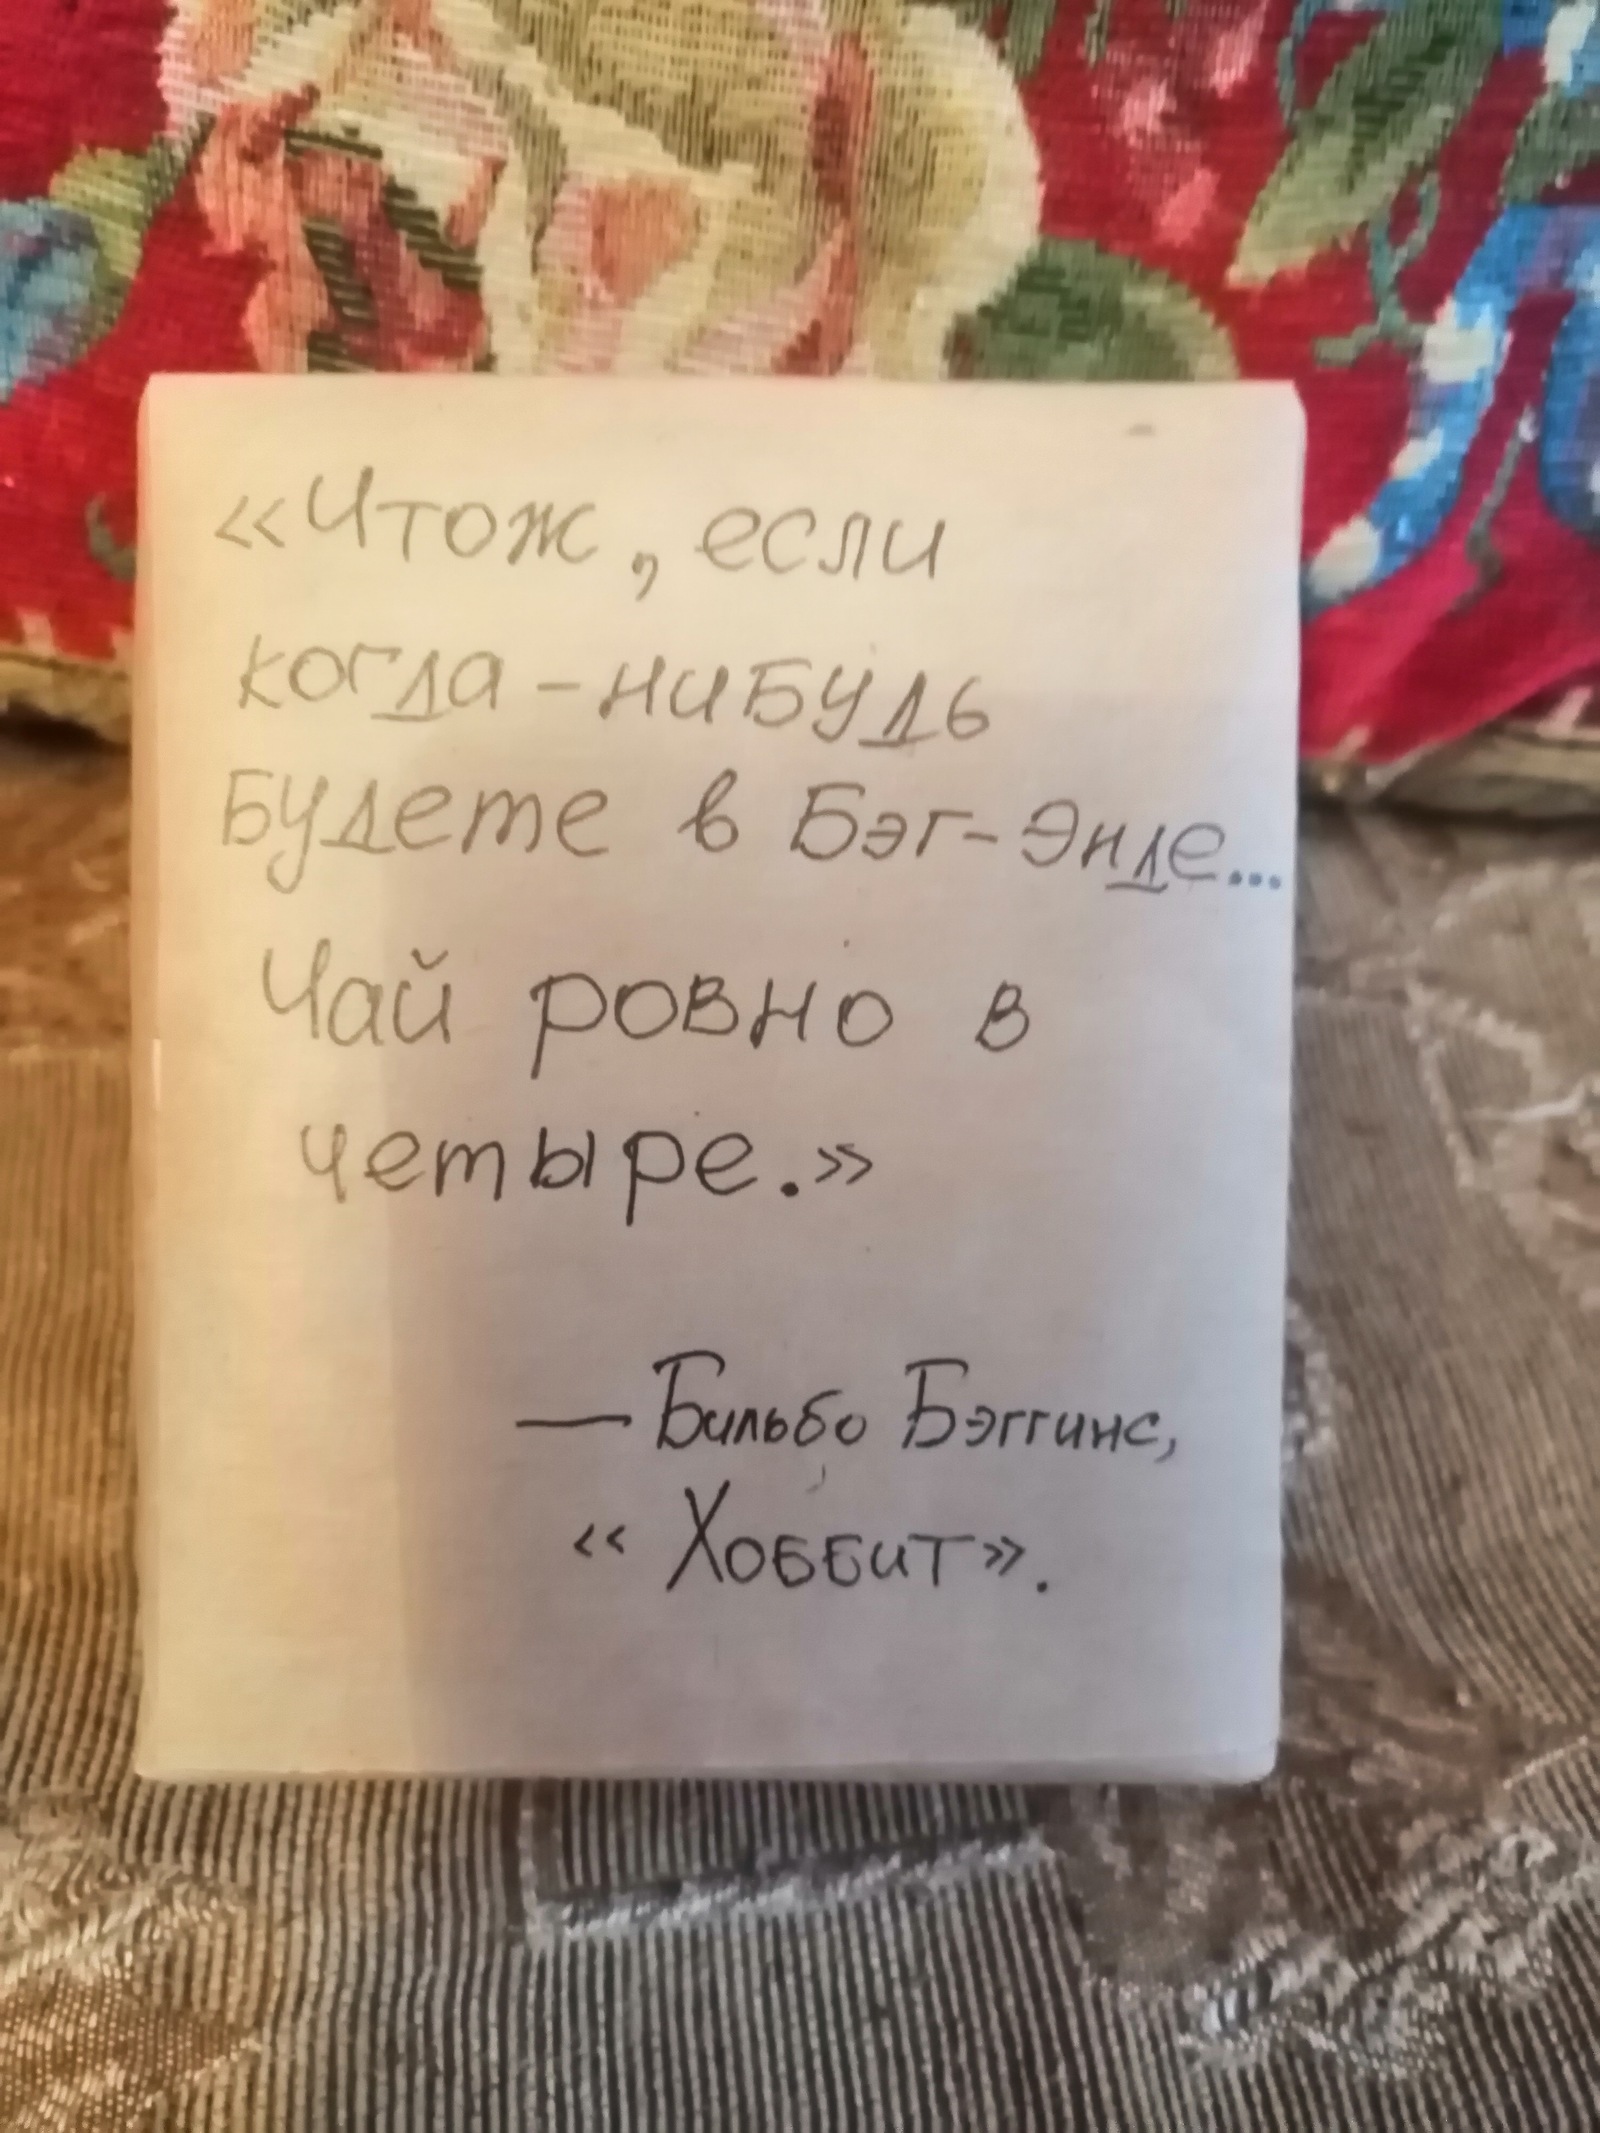 «Чтож, если
когда-нибудь
будете в Бэг-Энде...
Чай ровно в
четыре.»
— Бильбо Бэггинс,
«Хоббит».